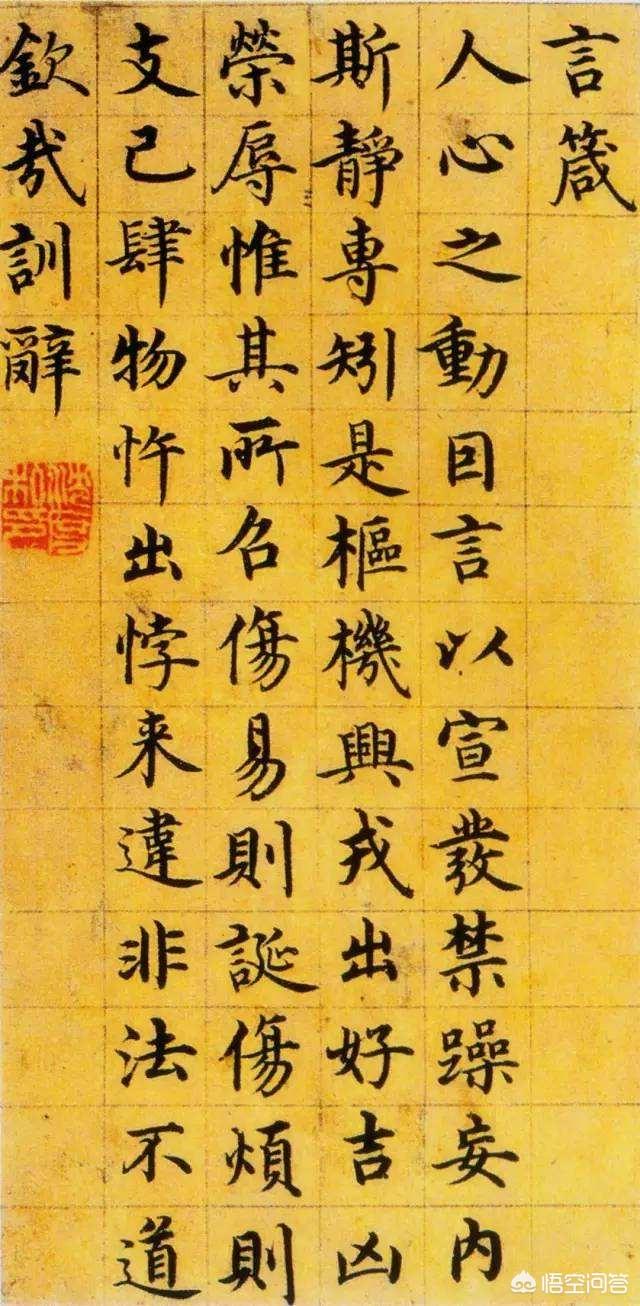 言箴
人心之動因言以宣發禁躁妄内
斯靜專矧是樞機興戎出好吉凶
榮辱惟其所召傷易則誕傷煩則
支己肆物忤出悖来違非法不道
欽哉訓辭
悟空问答